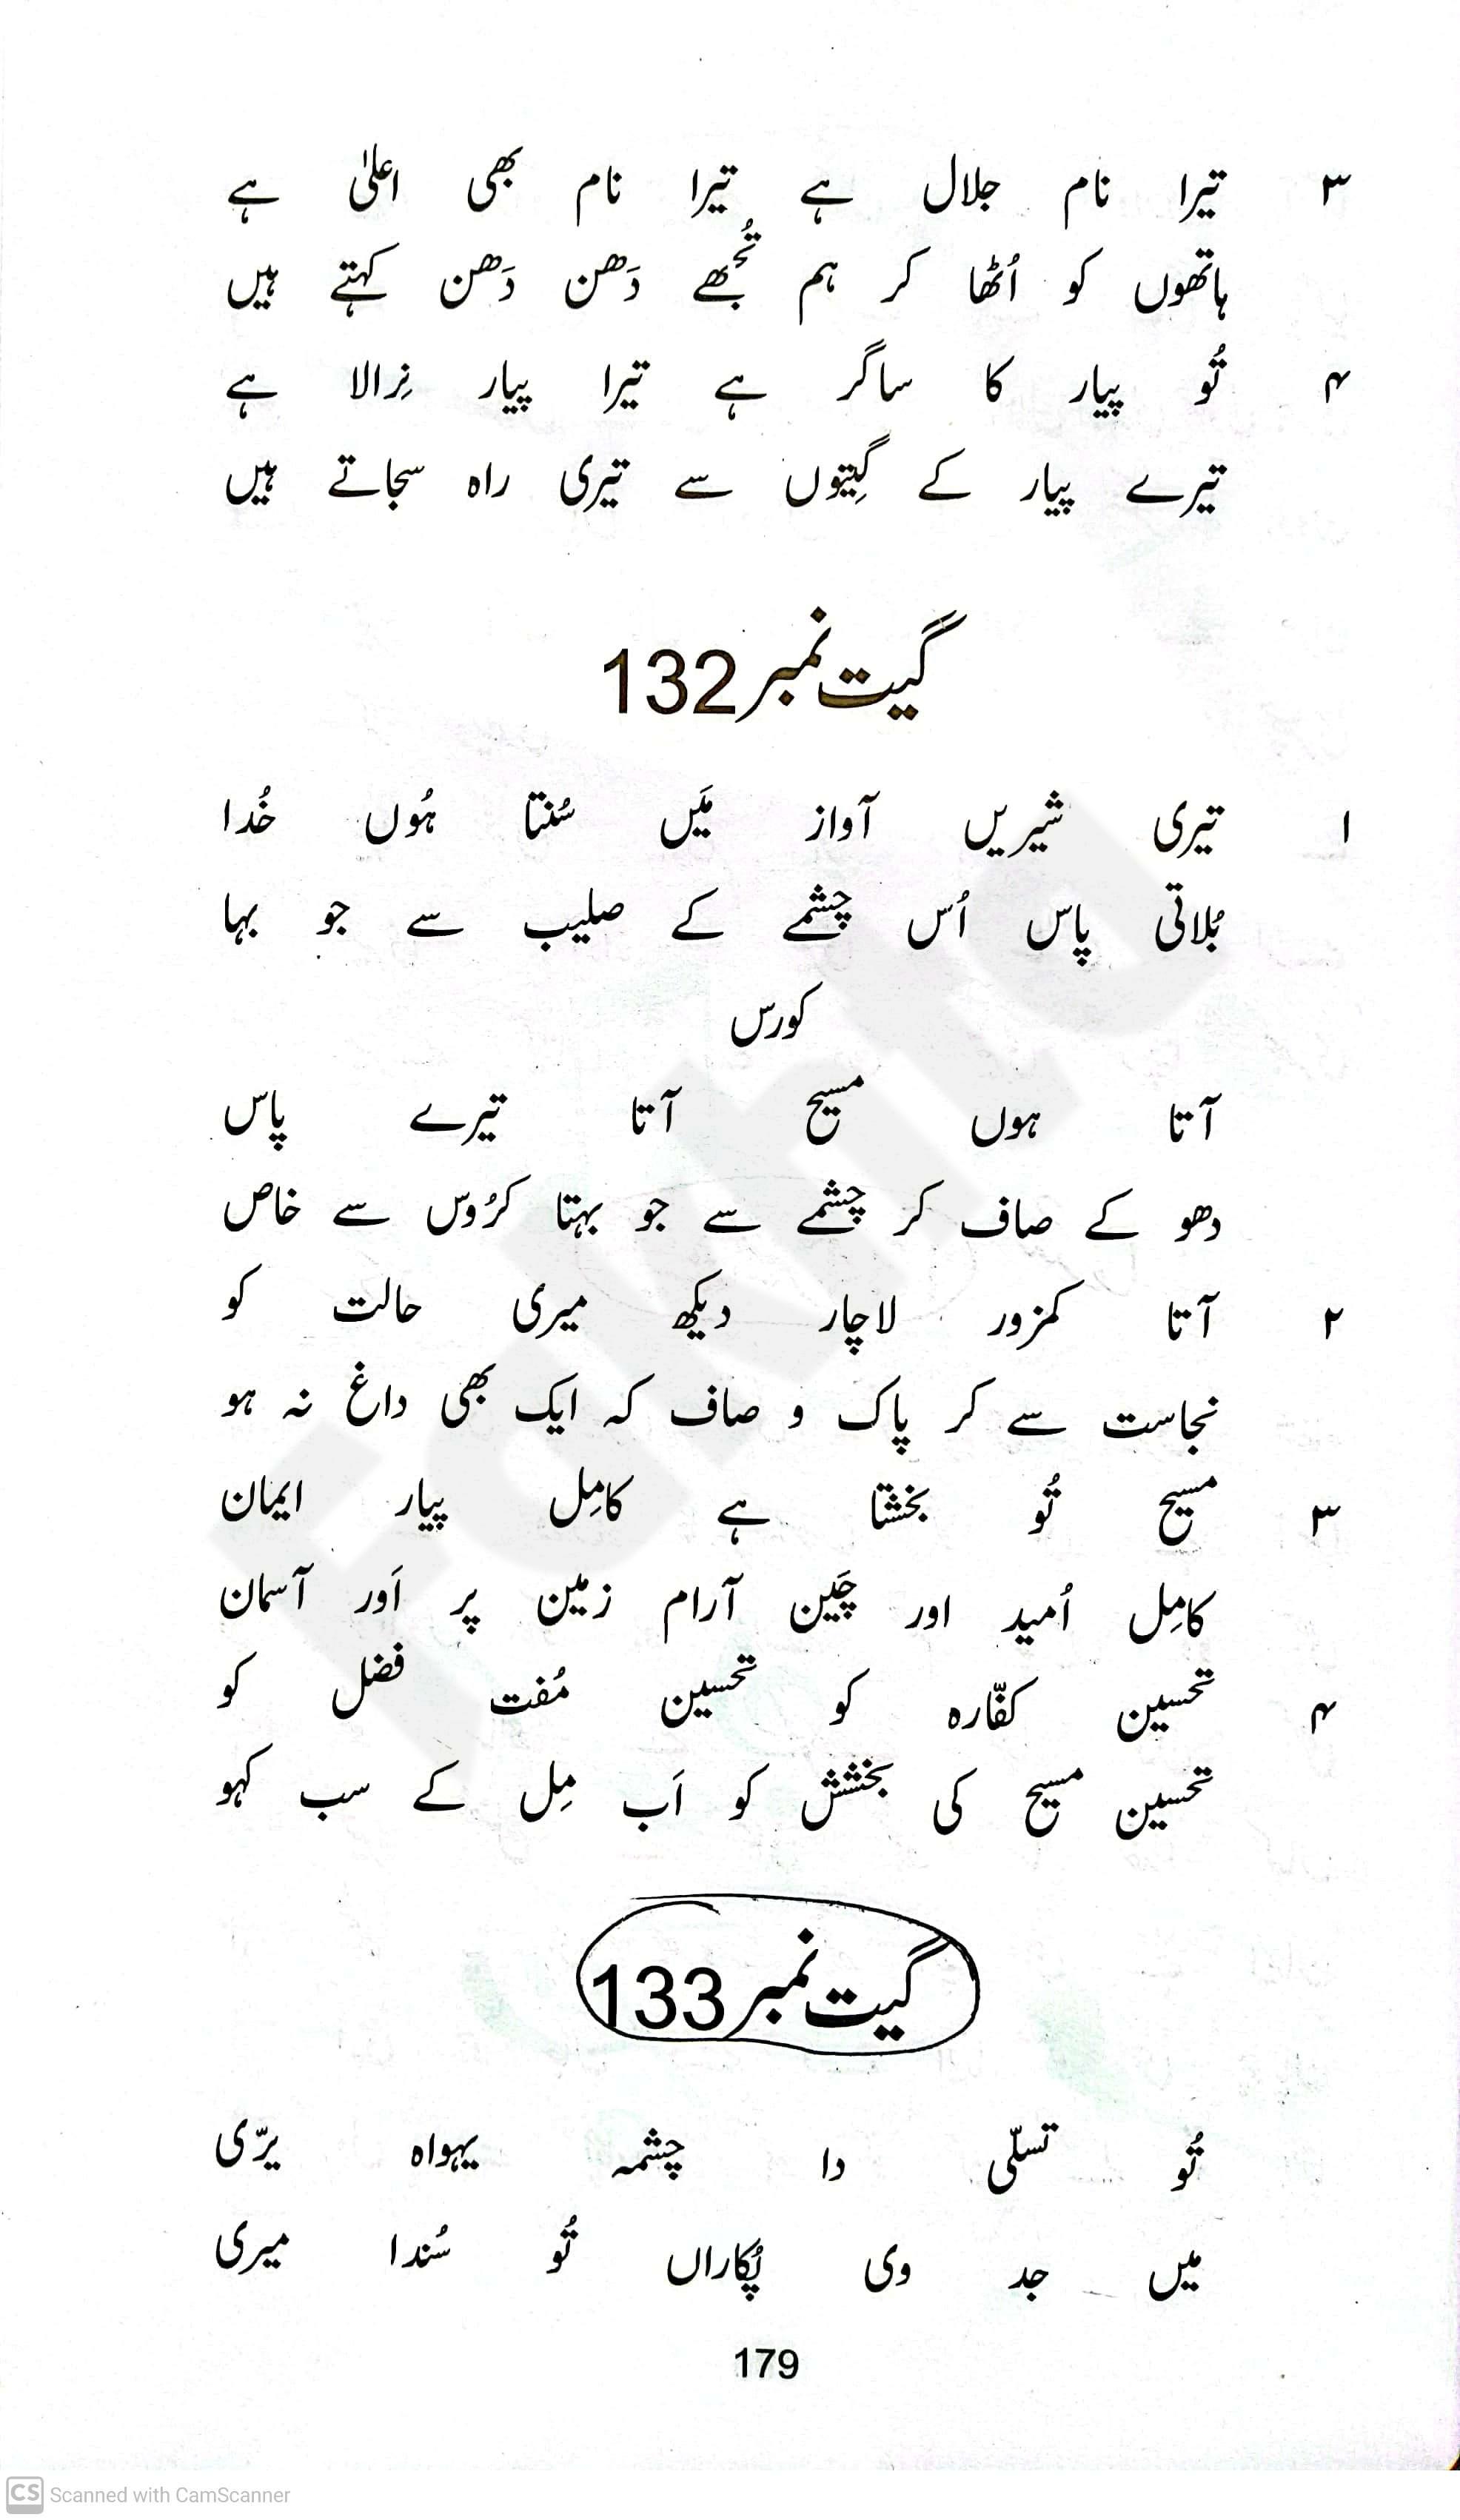 ۳ تیرا نام جلال ہے تیرا نام بھی اعلیٰ ہے
ہاتھوں کو اُٹھا کر ہم تُجھے دَھن دَھن کہتے ہیں
۴ تُو پیار کا ساگر ہے تیرا پیار نِرالا ہے
تیرے پیار کے گیِتوں سے تیری راہ سجاتے ہیں
گیت نمبر 132
۱ تیری شیریں آواز مَیں سُنتا ہُوں خُدا
بُلاتی پاس اُس چشمے کے صلیب سے جو بہا
کورس
آتا ہوں مسیح آتا تیرے پاس
دھو کے صاف کر چشمے سے جو بہتا کرُوس سے خاص
۲ آتا کمزور لاچار دیکھ میری حالت کو
نجاست سے کر پاک و صاف کہ ایک بھی داغ نہ ہو
۳ مسیح تُو بخشتا ہے کامِل پیار ایمان
کامِل اُمید اور چَین آرام زمین پر اَور آسمان
۴ تحسین کفّارہ کو تحسین مُفت فضل کو
تحسین مسیح کی بخشش کو اَب مِل کے سب کہو
گیت نمبر 133
تُو تسلّی دا چشمہ یہواہ یرّی
میں جد وی پُکاراں تُو سُندا میری
179
CS Scanned with CamScanner
Fakhta